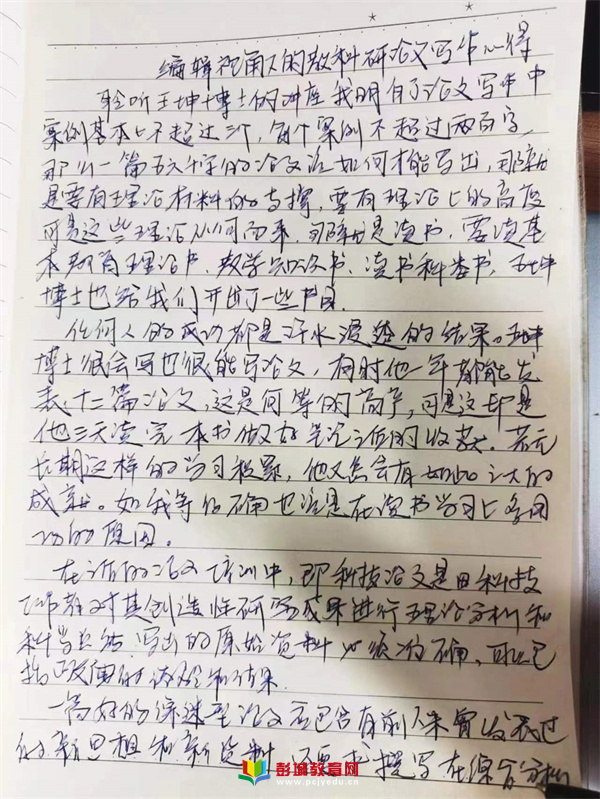 编辑视角下的教科研论文写作心得
聆听王坤博士的讲座我明白了论文写作中
案例基本上不超过三个,每个案例不超过两百字,
那么一篇五六千字的论文该如何才能写出,那就
是要有理论材料的支撑,要有理论上的高度
可是这些理论从何而来,那就是读书,要读基
本教育理论书,教学知识书,读书科类书,王坤
博士也给我们开出了一些书目。
任何人的成功都是汗水浸透的结果。王坤
博士很会写也很能写论文,有时他一年都能发
表十二篇论文,这是何等的高产,可是这却是
他三天读完一本书做好笔记之后的收获。若无
长期这样的学习积累,他又怎会有如此之大的
成就。如我等的确也该是在读书学习上多用
功的原因。
在之后的论文培训中,即科技论文是由科技
工作者对其创造性研究成果进行理论分析和
科学总结,写出的原始资料必须准确,可
的实验和结果。
一篇好的综述型论文应包含有前人未曾发表过
的新思想和新资料,撰写在综合分析
彭城教育网
www.pcjyedu.cn